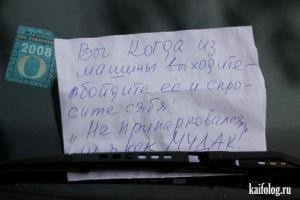 2008
Вы когда из
машины выходите –
обойдите ее и спро-
сите сябя:
"Не припарковался
ли я как ЧУДАК!
kaifolog.ru